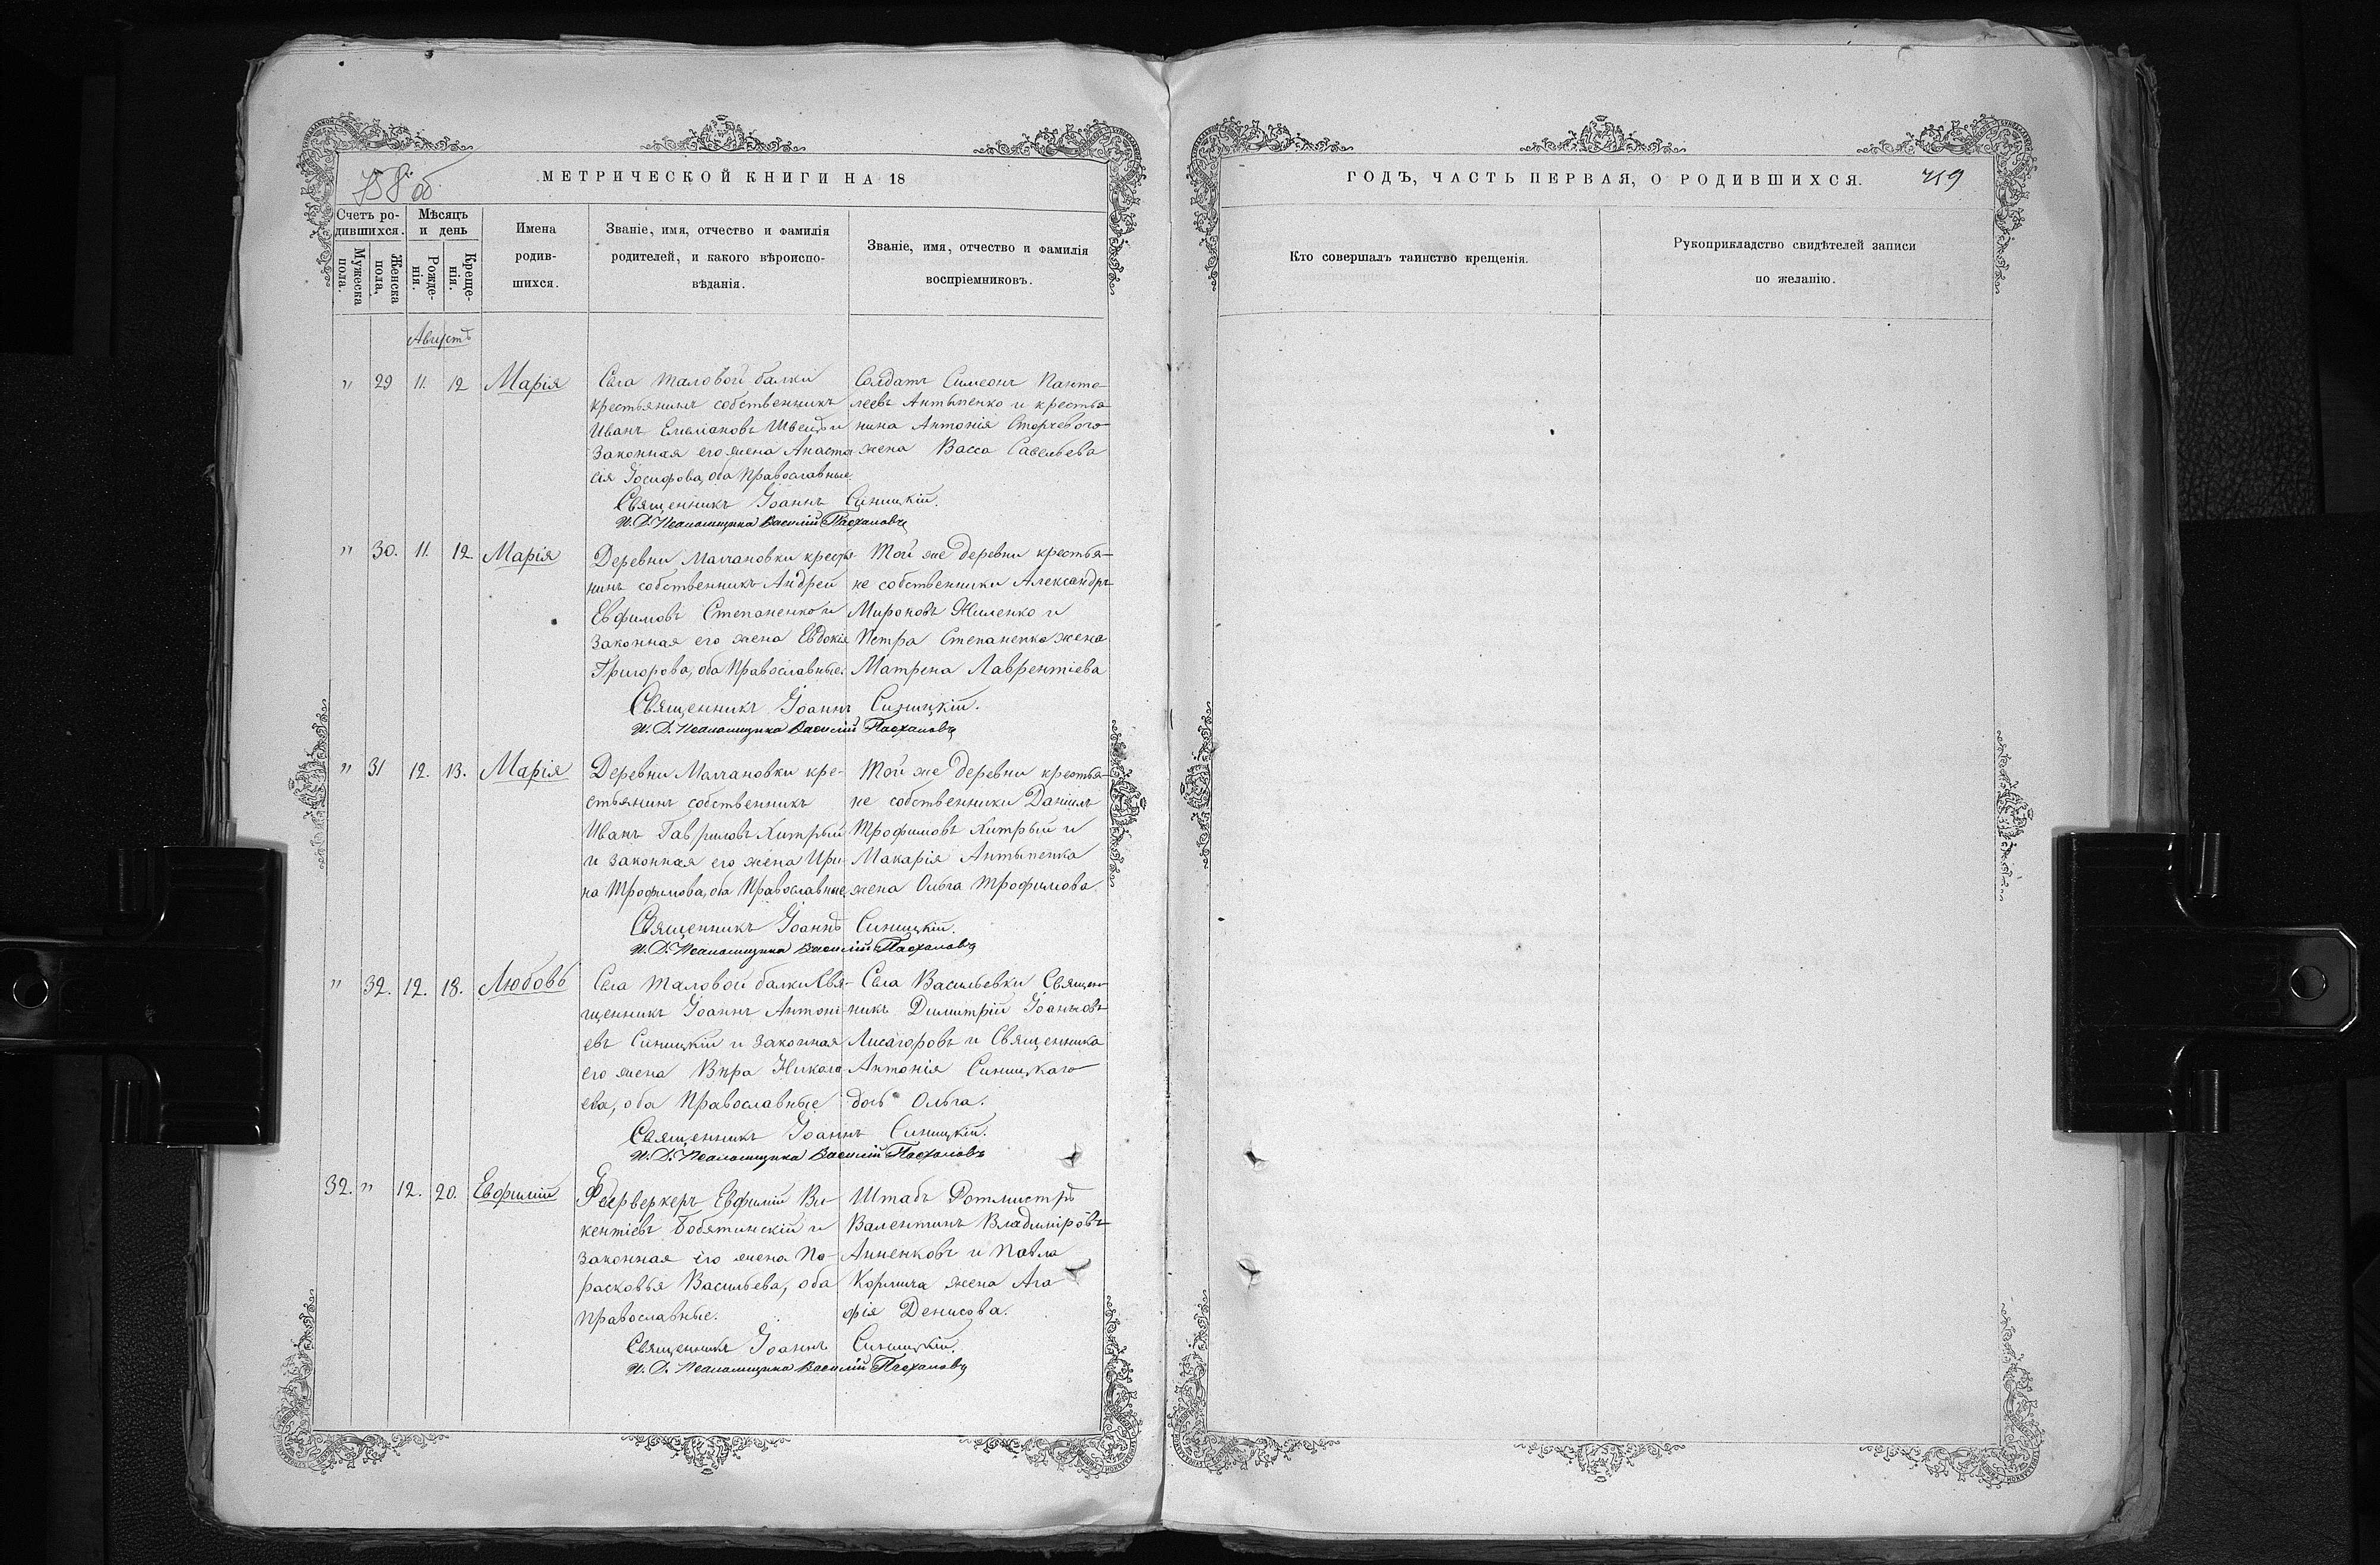 758 об
МЕТРИЧЕСКОЙ КНИГИ НА 18
Счетъ ро-
дившихся.
Мужеска
пола.
Женска
пола,
Мѣсяцъ
и день
Рожде-
нія.
Креще-
нія.
Имена
родив-
шихся.
Званіе, имя, отчество и фамилія
родителей, и какого вѣроиспо-
вѣданія.
Званіе, имя, отчество и фамилія
воспріемниковъ.
Августъ
" 29 11. 12 Марія Села Таловой балки Солдатъ Симеонъ Панте-
крестьянинъ собственникъ леевъ Антыпенко и крестья-
Иванъ Емельяновъ и нина Антонія Сторчеваго
законная его жена Анаста жена Васса Савельева
сія Іосифова, оба Православные.
Священникъ Іоаннъ Синицкій.
И. Д. Псаломщика Василій Пасхаловъ
" 30. 11. 12 Марія Деревни Малчановки кресть- Той же деревни крестья-
нинъ собственникъ Андрей не собственники Александръ
Евфимовъ Степаненко и Мироновъ Жиленко и
законная его жена Евдокія Петра Степаненка жена
Григорова, оба Православные. Матрена Лаврентіева
Священникъ Іоаннъ Синицкій.
И. Д. Псаломщика Василій Пасхаловъ
" 31 12. 13. Марія Деревни Малчановки кре- Той же деревни крестья-
стьянинъ собственникъ не собственники Даніилъ
Иванъ Гавриловъ Хитрый Трофимовъ Хитрый и
и законная его жена Ири- Макарія Антыпенка
на Трофимова, оба Православные, жена Ольга Трофимова
Священникъ Іоаннъ Синицкій.
И. Д. Псаломщика Василій Пасхаловъ
" 32. 12. 18. Любовь Села Таловой балки Свя- Села Васильевки Священ-
щенникъ Іоаннъ Антоні- никъ Димитрій Іоанновъ
евъ Синицкій и законная Лисагоровъ и Священника
его жена Вѣра Никола- Антонія Синицкаго
ева, оба Православные дочь Ольга.
Священникъ Іоаннъ Синицкій.
И. Д. Псаломщика Василій Пасхаловъ
32. " 12. 20. Евфимій Феерверкеръ Евфимій Ви- Штабъ Ротмистръ
кентіевъ Бобятинскій и Валентинъ Владиміровъ
законная его жена Па- Анненковъ и Павла
расковья Васильева, оба Кормича жена Ага
православные. фія Денисова.
Священникъ Іоаннъ Синицкій.
И. Д. Псаломщика Василій Пасхаловъ
ГОДЪ, ЧАСТЬ ПЕРВАЯ, О РОДИВШИХСЯ. 759
Кто совершалъ таинство крещенія.
Рукоприкладство свидѣтелей записи
по желанію.